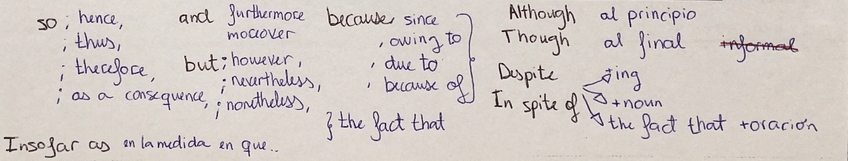 so ; hence,
; thus,
; therefore,
; as a consequence,
and furthermore
moreover
but ; however,
; nevertheless,
; nonetheless,
because since
, owing to
, due to
, because of
} the fact that
Although al principio
Though al final informal
Despite
In spite of
+ing
+noun
the fact that +oración
Insofar as en la medida en que..